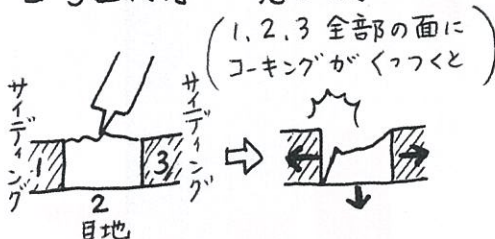 (1,2,3 全部の面に
コーキングがくっつくと)
サイディング
サイディング
1
3
2
目地